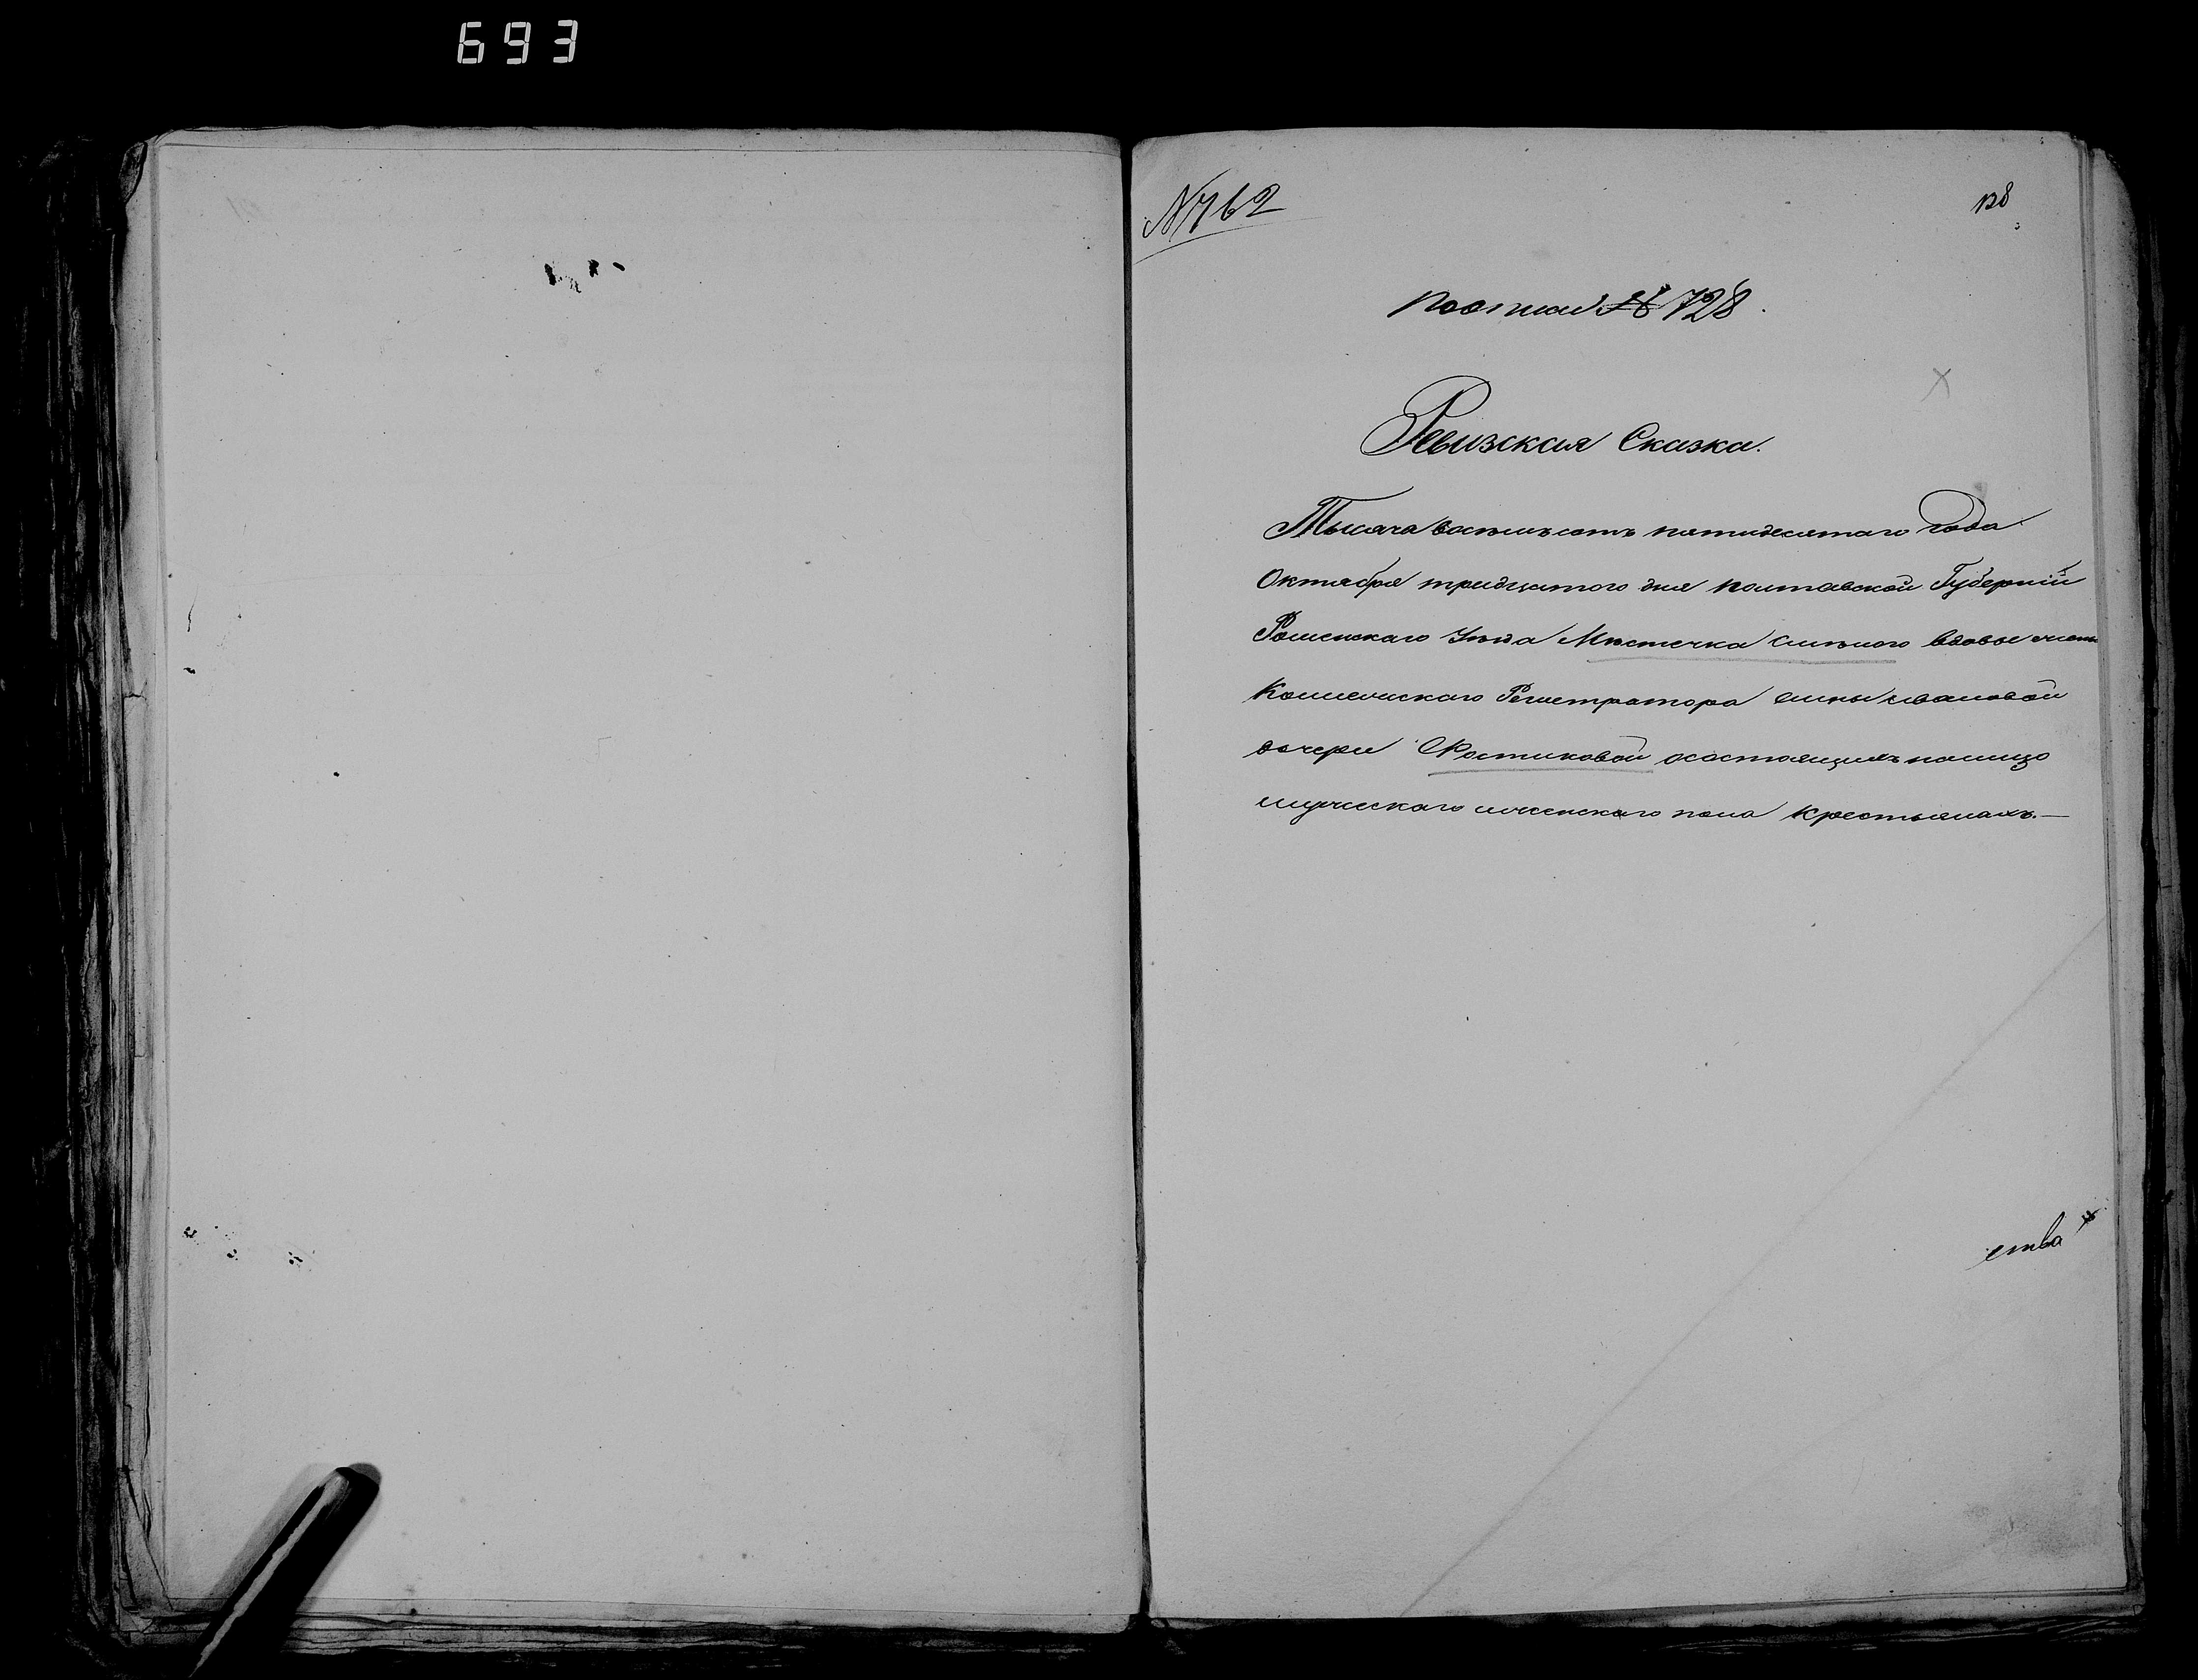 693
№762
138
По описи № 728.
Ревизская Сказка.
Тысяча восемьсотъ пятидесятаго года
Октября тридцатого дня Полтавской Губерніи
Роменскаго Уезда Местечка Смелого вдовы жены
Коллежскаго Регистратора Анны Ивановой
дочери Фотиковой осостоящихъ налицо
мужескаго иженскаго пола крестьянахъ.—
ства